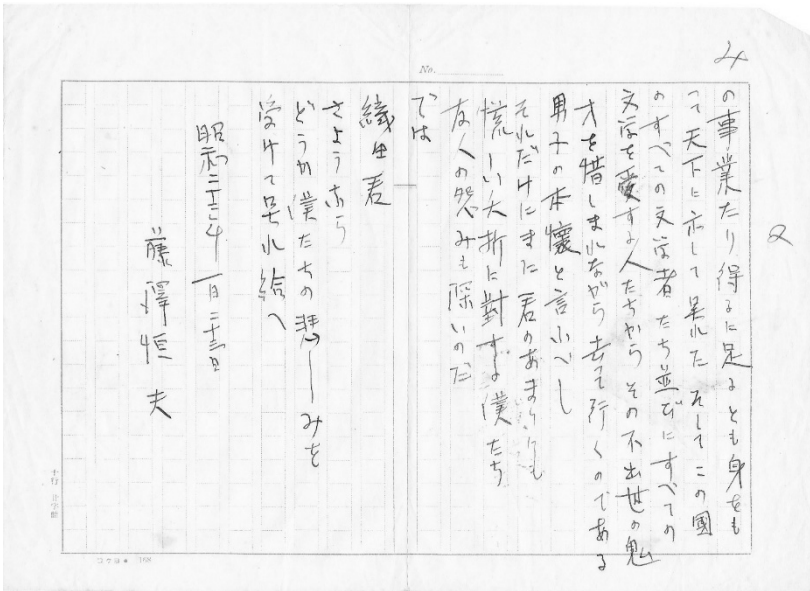 No.
み
の事業たり得るに足るとも身をも
つて天下に示して呉れた そしてこの國
のすべての文学者たち並びにすべての
文学を愛する人たちから その不出世の鬼
才を惜しまれながら去つて行くのである
男子の本懐と言ふべし
それだけにまた君のあまりにも
慌しい夭折に對する僕たち
友人の怨みも深いのだ
では
織田君
さようなら
どうか僕たちの悲しみを
受けて呉れ給へ
昭和二十二年 一月二十三日
藤澤恒夫